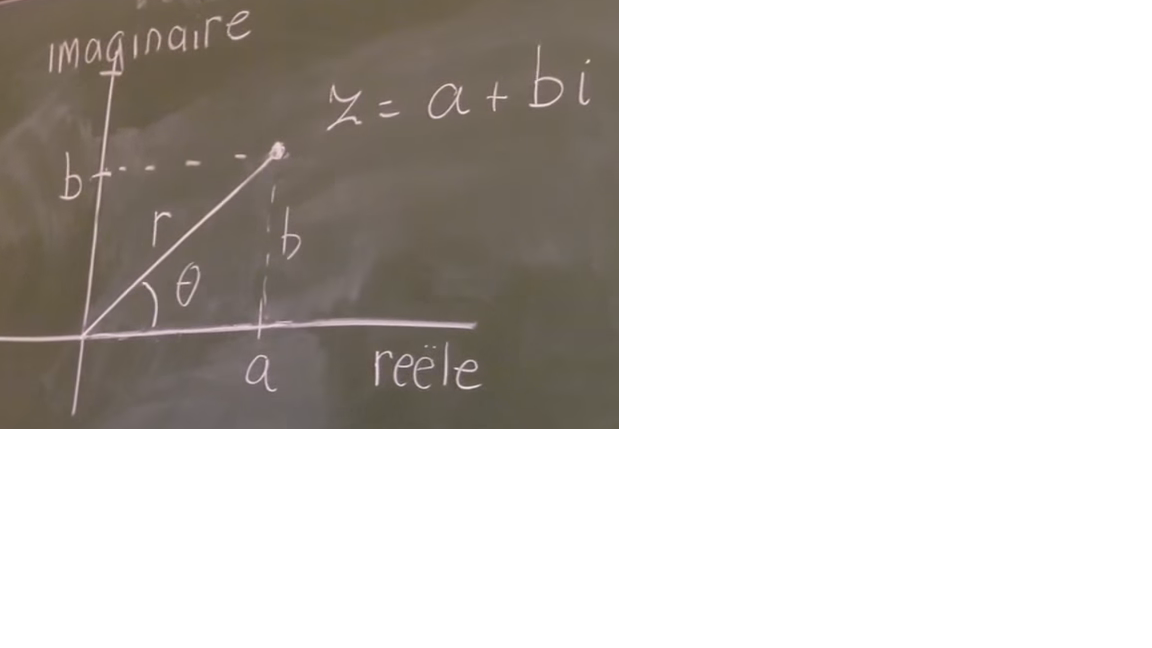 imaginaire
z = a + bi
b
r
b
θ
a
reële